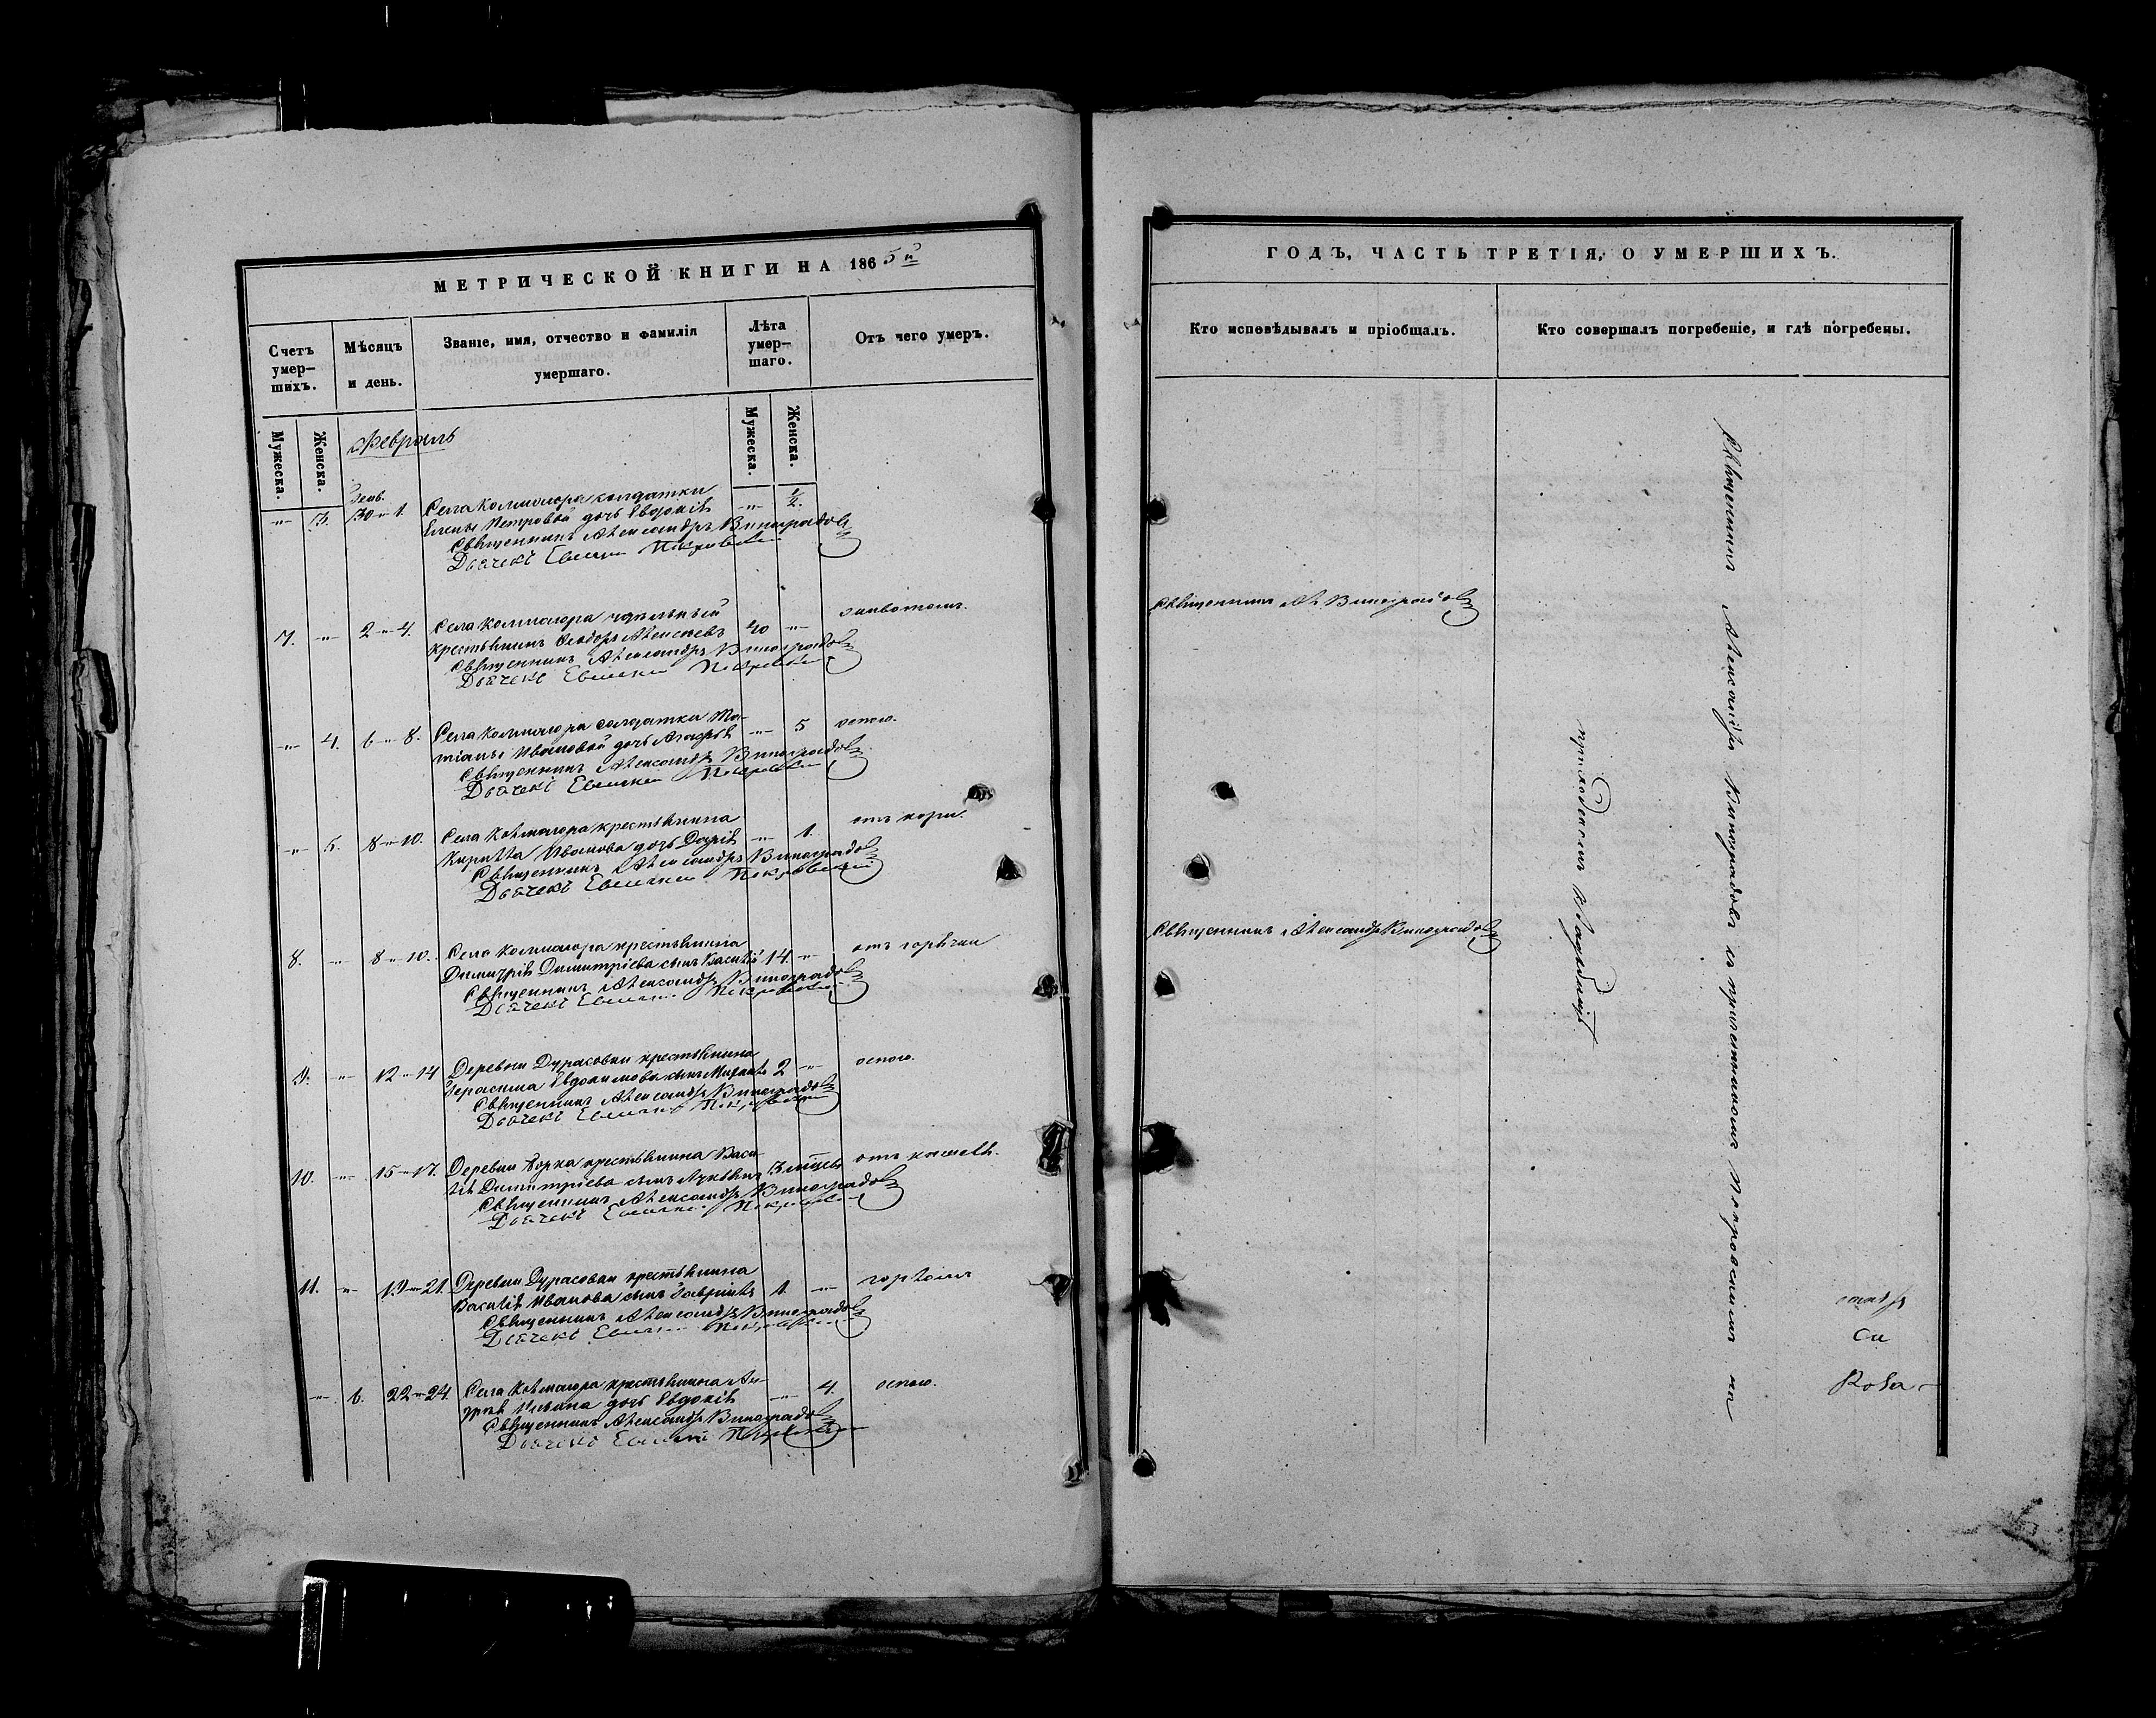 МЕТРИЧЕСКОЙ КНИГИ НА 1865й
Счетъ умер-шихъ.
Мѣсяцъ и день.
Званіе, имя, отчество и фамилія умершаго.
Лѣта умер-шаго.
Отъ чего умеръ.
Мужеска.
Женска.
Мужеска.
Женска.
Февраль
Генв.
-"- 3. 30-"-1. Села Колмаюра солдатки -"- 1/2.
Елены Петровой дочь Евдокія
Священникъ Александръ Виноградовъ
Дьячекъ Покровскій
7. -"- 2-"-4. Села Колмаюра удѣльный
крестьянинъ Алексѣевъ 40 -"- животомъ.
Священникъ Александръ Виноградовъ
Дьячекъ Покровскій
-"- 4. 6-"-8. Села Колмаюра солдатки Та-
тіаны Ивановой дочь Агафія -"- 5 оспою.
Священникъ Александръ Виноградовъ
Дьячекъ Покровскій
-"- 5. 8-"-10. Села Колмаюра крестьянина
Кирилла Иванова дочь Дарія -"- 1. отъ кори.
Священникъ Александръ Виноградовъ
Дьячекъ Покровскій
8. -"- 8-"-10. Села Колмаюра крестьянина
Димитрія Димитріева сынъ Василій 14 -"- отъ горячки
Священникъ Александръ Виноградовъ
Дьячекъ Покровскій
9. -"- 12-"-14 Деревни Дурасовки крестьянина
Герасима Евдокимова сынъ Михаилъ 2 -"- оспою.
Священникъ Александръ Виноградовъ
Дьячекъ Покровскій
10. -"- 15-"-17. Деревни крестьянина Васи-
лія Димитріева сынъ Лукіянъ 3 отъ кашля.
Священникъ Александръ Виноградовъ
Дьячекъ Покровскій
11. -"- 19-"-21. Деревни Дурасовки крестьянина
Василія Иванова сынъ Гавріилъ 1. -"- горломъ
Священникъ Александръ Виноградовъ
Дьячекъ Покровскій
-"- 6. 22-"-24. Села Колмаюра крестьянина Ан-
дрея дочь Евдокія -"- 4. оспою.
Священникъ Александръ Виноградовъ
Дьячекъ Покровскій
ГОДЪ, ЧАСТЬ ТРЕТІЯ, О УМЕРШИХЪ.
Кто исповѣдывалъ и пріобщалъ.
Кто совершалъ погребеніе, и гдѣ погребены.
Священникъ Ал Виноградовъ
Священникъ Александръ Виноградовъ
Священникъ Александръ Виноградовъ съ причетникомъ Покровскимъ на
приходскомъ кладбищѣ